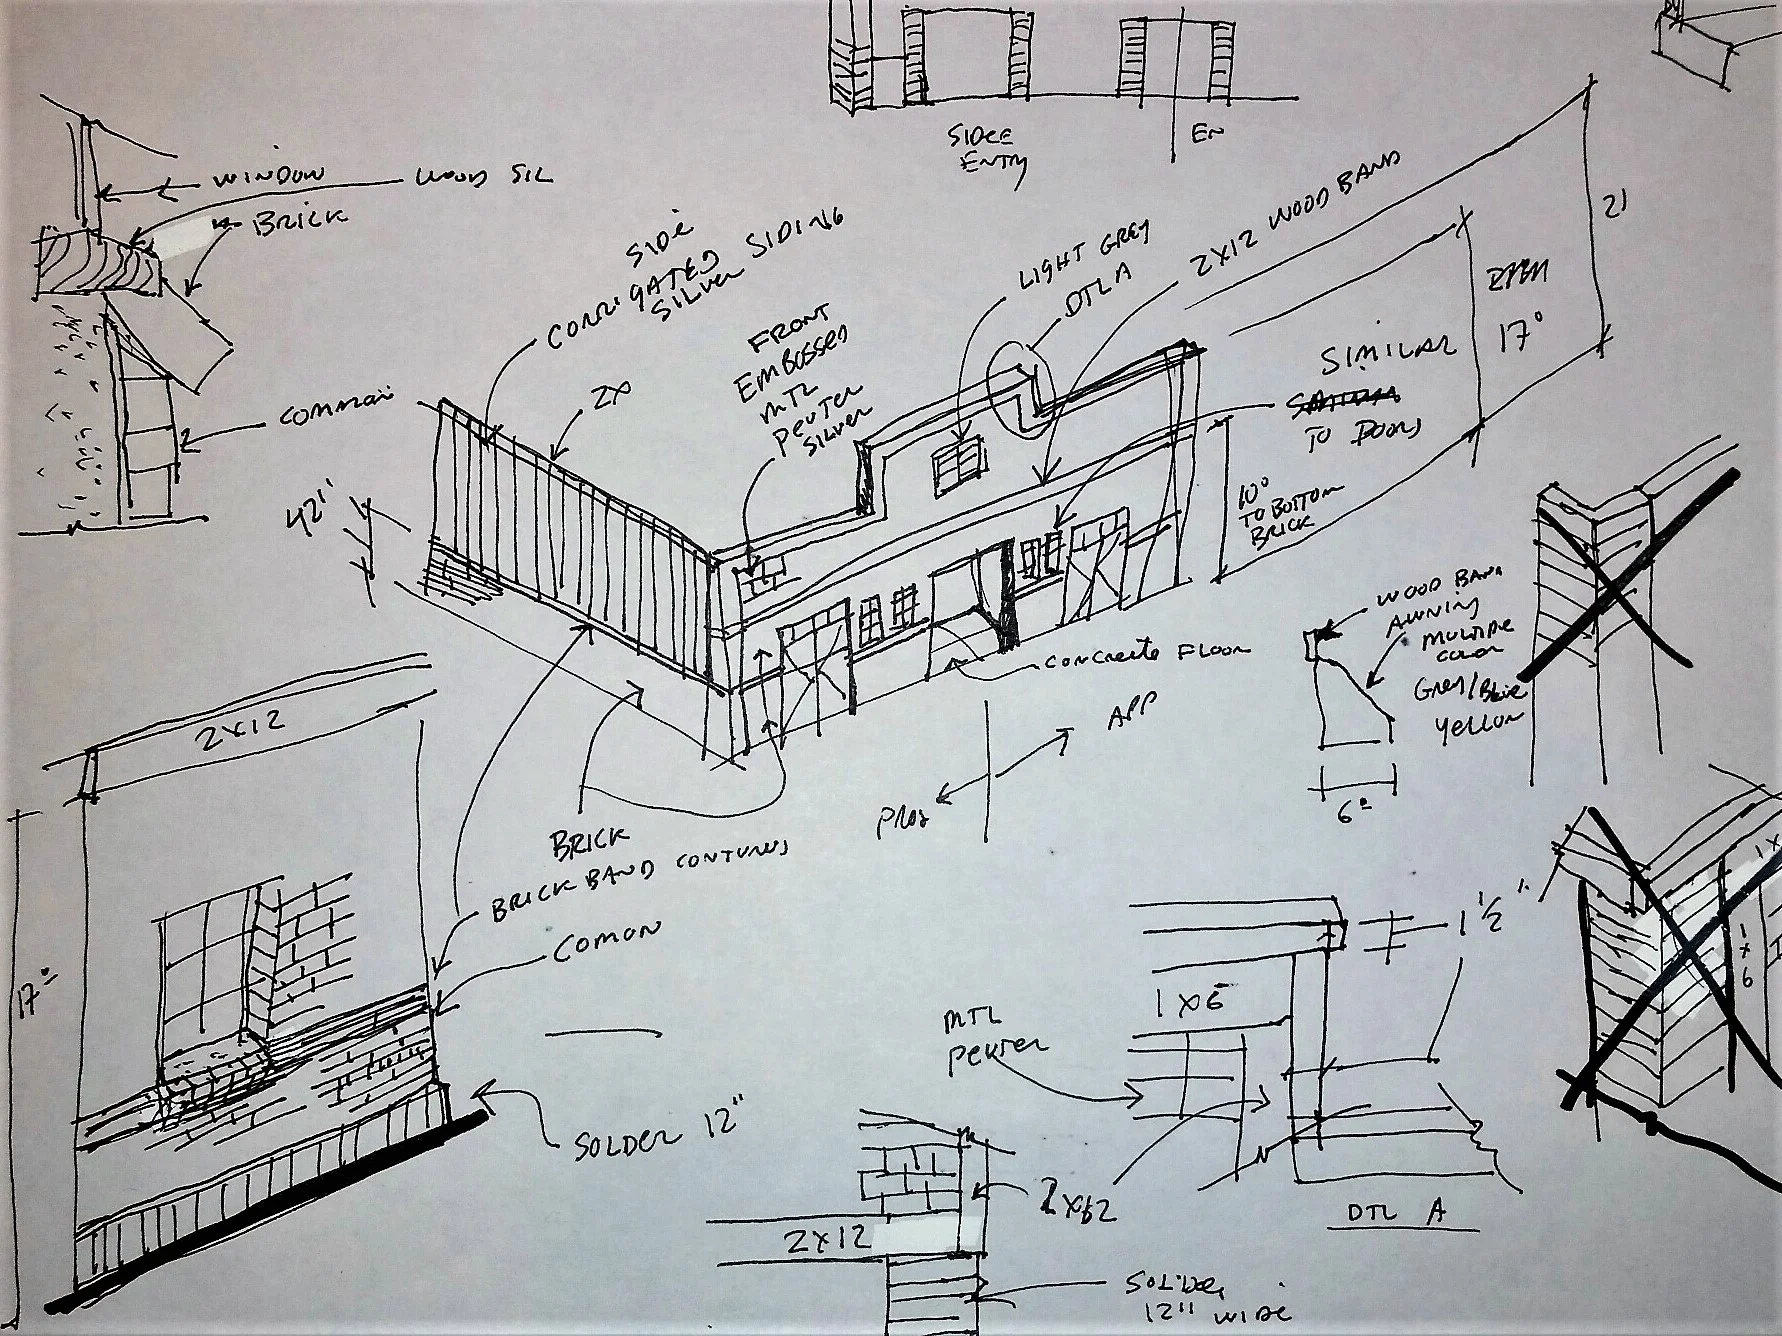 SIDEE
ENTRY
EN
WINDOW
WOOD SIL
BRICK
COMMON
SIDE
CORRIGATED SIDING
SILVER
2X
FRONT
EMBOSSED
MTL
PEUTER
SILVER
LIGHT GREY
DTL A
2X12 WOOD BAND
21
17°
SIMILAR
TO DOORS
10°
TO BOTTOM
BRICK
42"
CONCREATE FLOOR
APP
WOOD BAND
AWNING
MULTIPLE
COLOR
GREY/BLUE
YELLOW
6°
2X12
17°
BRICK
BRICK BAND CONTUNUS
COMON
SOLDER 12"
MTL
PEUTER
1X6
1 1/2"
1X6
1X
2X12
SOLDER
12" WIDE
DTL A